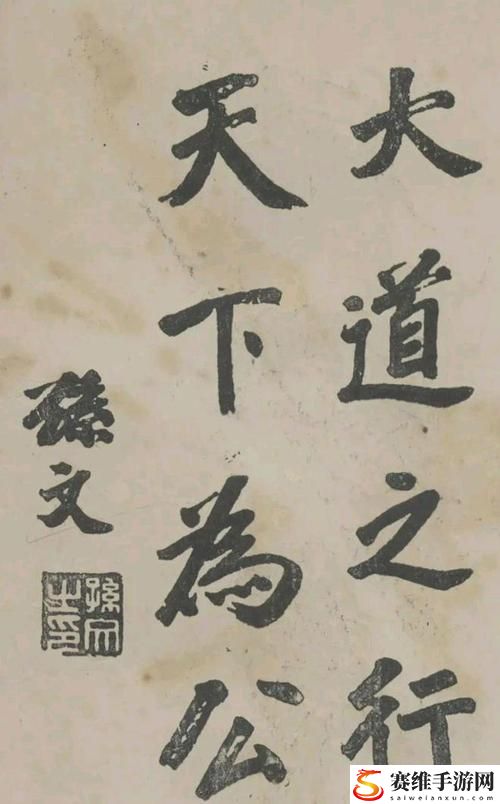 大道之行
天下為公
孫文
孫文之印
赛维手游网
saiweianxun.com